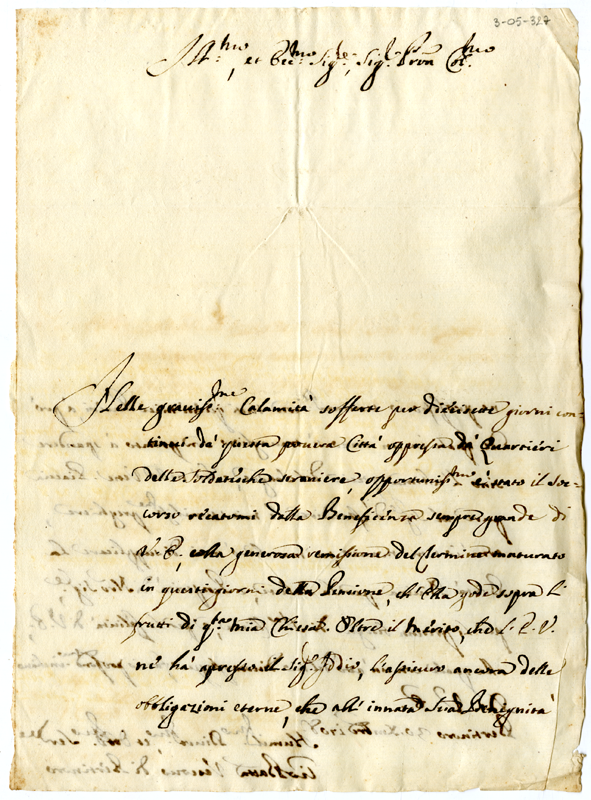 3-05-327
Ill.mo, et Ecc.mo Sig.re, Sig.re Pron Col.mo
Nelle graviss.me Calamità sofferte per diecisette giorni con=
tinui da questa povera Città oppressa da Quartieri
delle soldatesche straniere, opportuniss.mo è stato il soc=
corso recatomi dalla Beneficenza sempre grande di
V. E., colla generosa remissione del termine maturato
in questi giorni della Pensione, ch'Ella gode sopra li
frutti di q.ta mia Chiesa. Oltre il merito che l'E. V.
ne hà apresso il Sig.re Iddio, l'assicuro ancora delle
obbligazioni eterne, che all'innata Sua Benignità